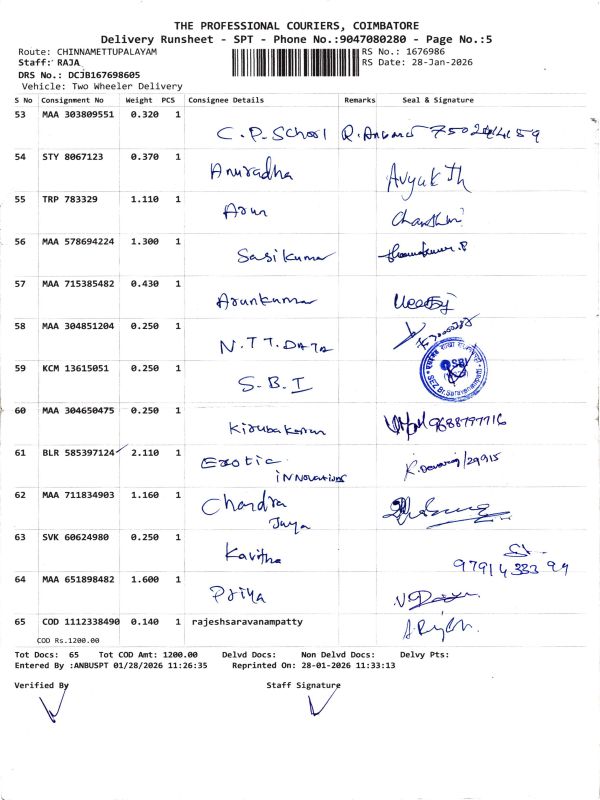 THE PROFESSIONAL COURIERS, COIMBATORE
Delivery Runsheet - SPT - Phone No.:9047080280 - Page No.:5
Route: CHINNAMETTUPALAYAM RS No.: 1676986
Staff: RAJA RS Date: 28-Jan-2026
DRS No.: DCJB167698605
Vehicle: Two Wheeler Delivery
S No Consignment No Weight PCS Consignee Details Remarks Seal & Signature
53 MAA 303809551 0.320 1
C.P. School
54 STY 8067123 0.370 1
Anuradha Avyukth
55 TRP 783329 1.110 1
Arun
56 MAA 578694224 1.300 1
Sasikumar
57 MAA 715385482 0.430 1
Arunkumar
58 MAA 304851204 0.250 1
N.T.T. DATA
59 KCM 13615051 0.250 1
S.B.I SBI
60 MAA 304650475 0.250 1
Kirubakaran 9688797716
61 BLR 585397124 2.110 1
Exotic
innovations
62 MAA 711834903 1.160 1
Chandra
Jaya
63 SVK 60624980 0.250 1
Kavitha
64 MAA 651898482 1.600 1
Priya
65 COD 1112338490 0.140 1 rajeshsaravanampatty
COD Rs.1200.00
Tot Docs: 65 Tot COD Amt: 1200.00 Delvd Docs: Non Delvd Docs: Delvy Pts:
Entered By :ANBUSPT 01/28/2026 11:26:35 Reprinted On: 28-01-2026 11:33:13
Verified By Staff Signature